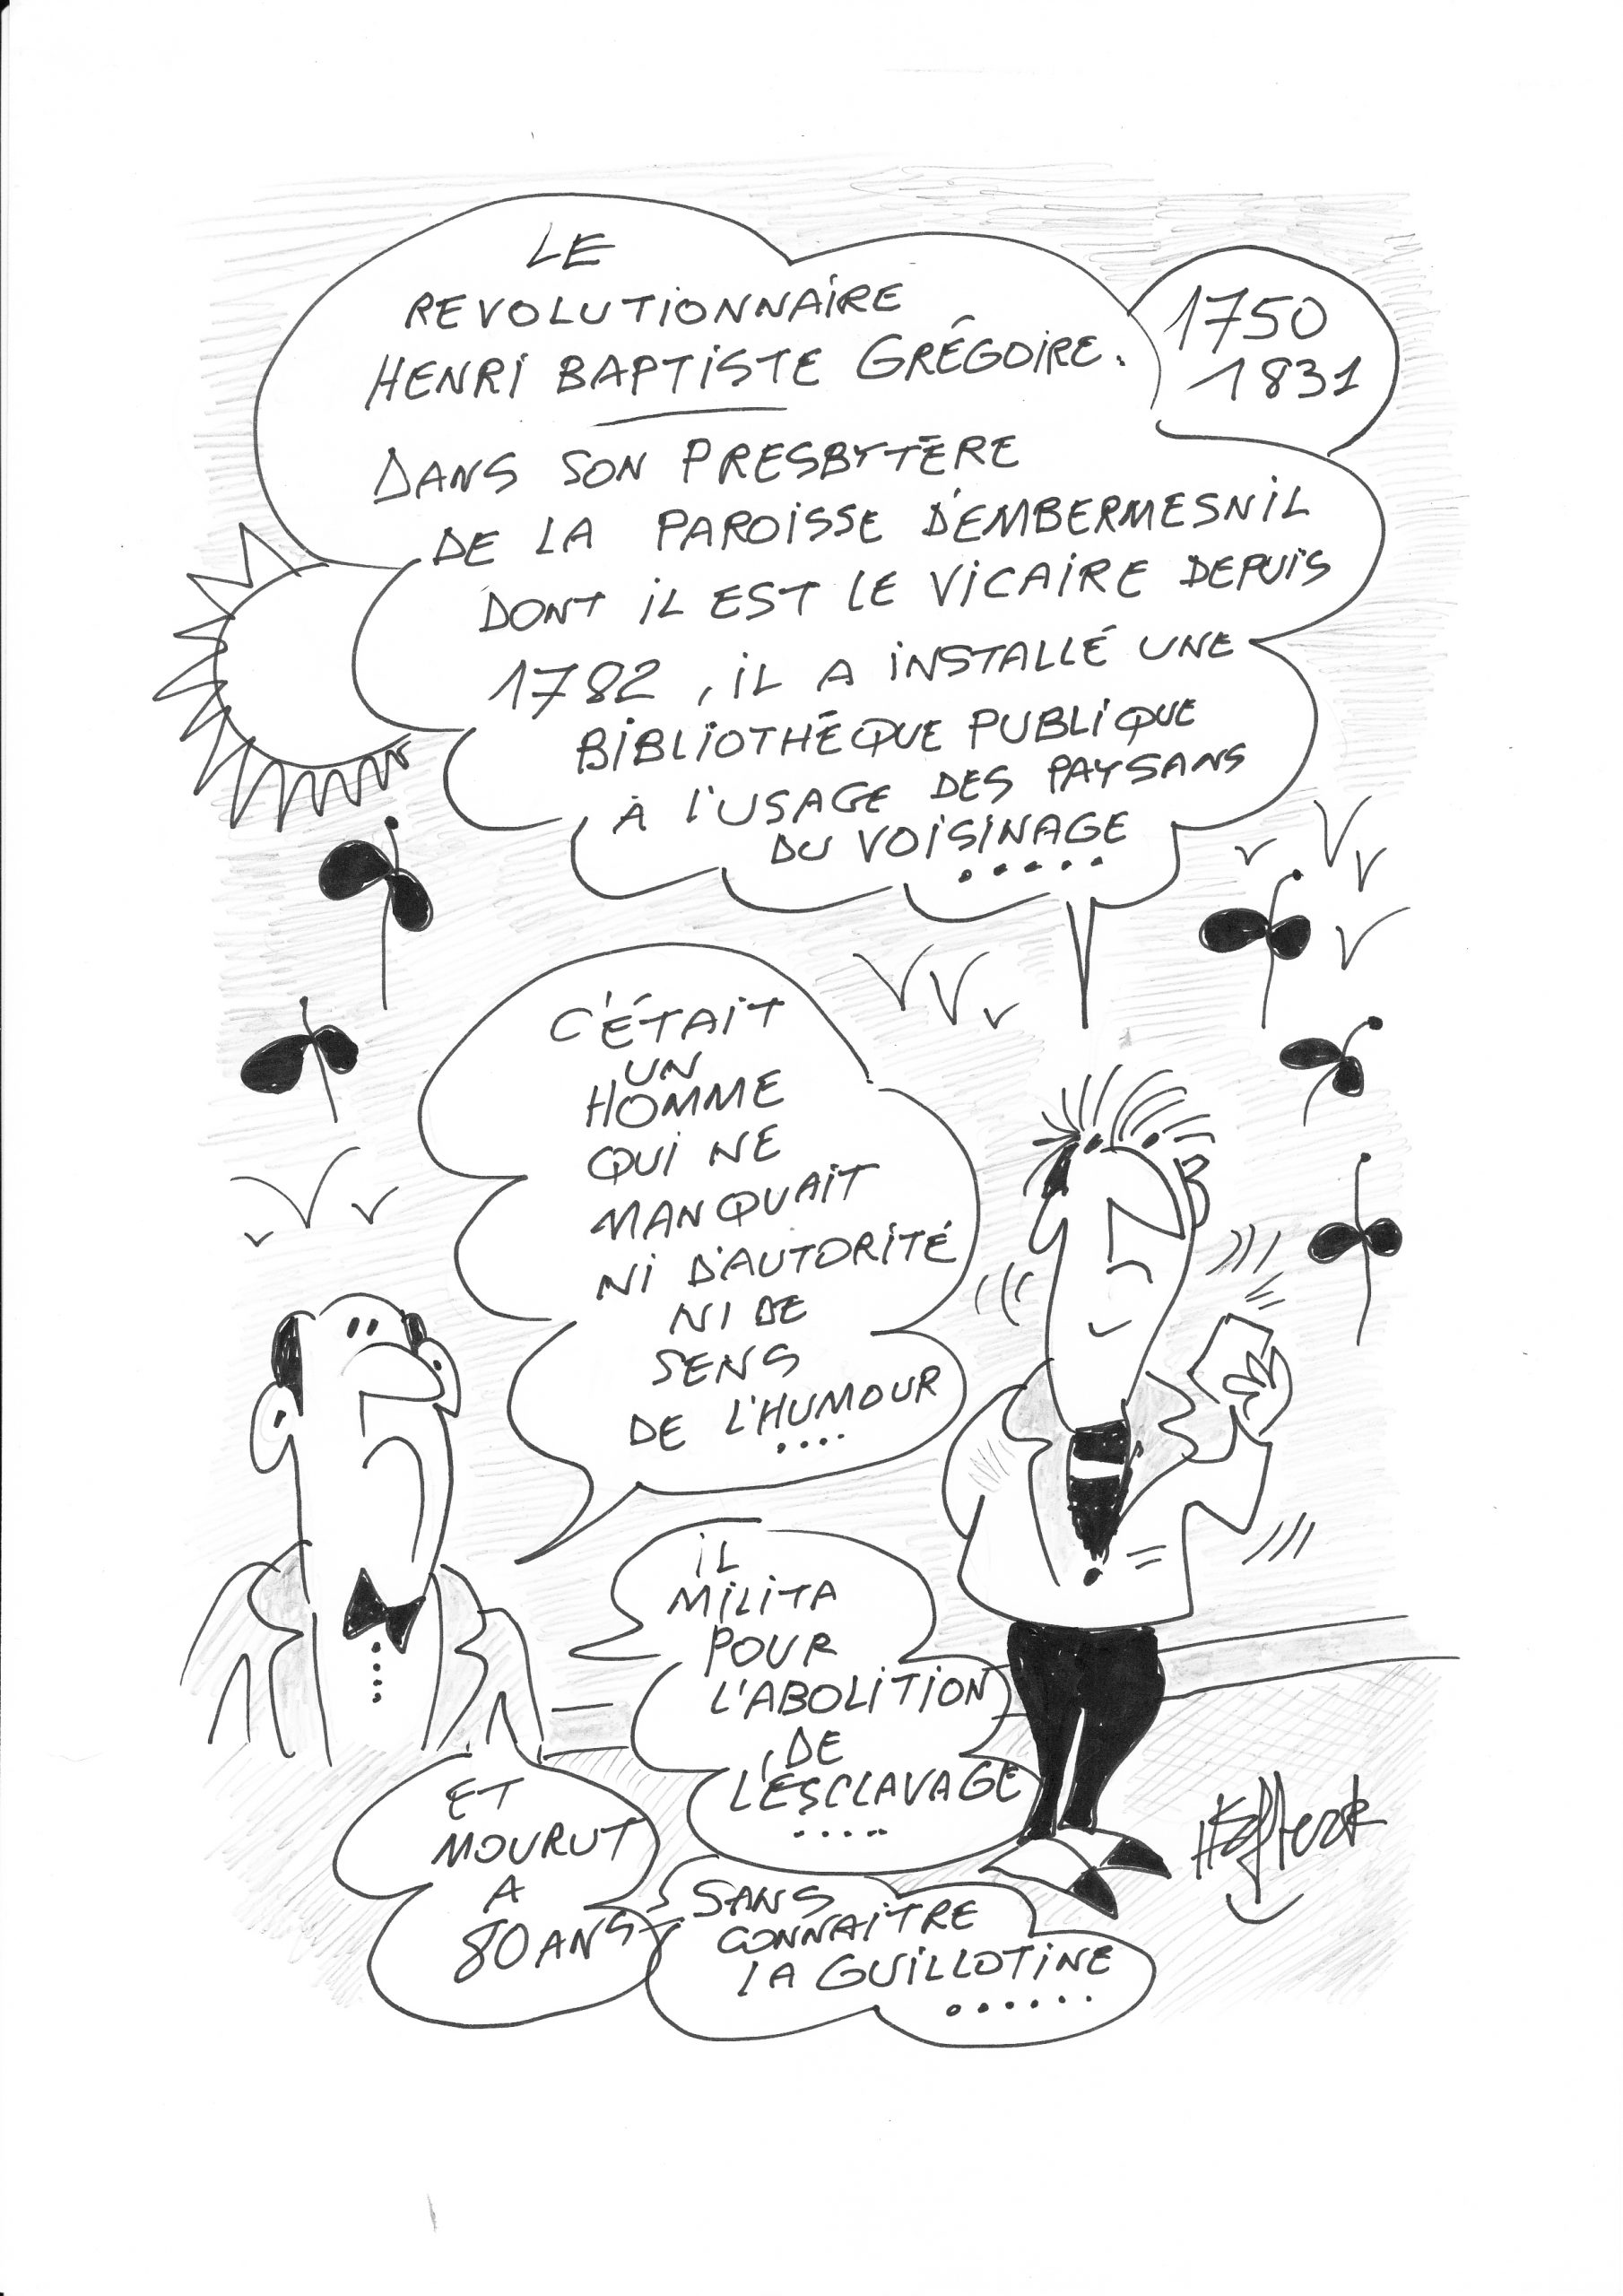 LE
REVOLUTIONNAIRE
HENRI BAPTISTE GRÉGOIRE.
1750
1831
DANS SON PRESBYTÈRE
DE LA PAROISSE D'EMBERMESNIL
DONT IL EST LE VICAIRE DEPUIS
1782, IL A INSTALLÉ UNE
BIBLIOTHÉQUE PUBLIQUE
À L'USAGE DES PAYSANS
DU VOISINAGE
.....
C'ÉTAIT
UN
HOMME
QUI NE
MANQUAIT
NI D'AUTORITÉ
NI DE
SENS
DE L'HUMOUR
....
IL
MILITA
POUR
L'ABOLITION
DE
L'ESCLAVAGE
.....
ET
MOURUT
A
80 ANS
SANS
CONNAITRE
LA GUILLOTINE
......